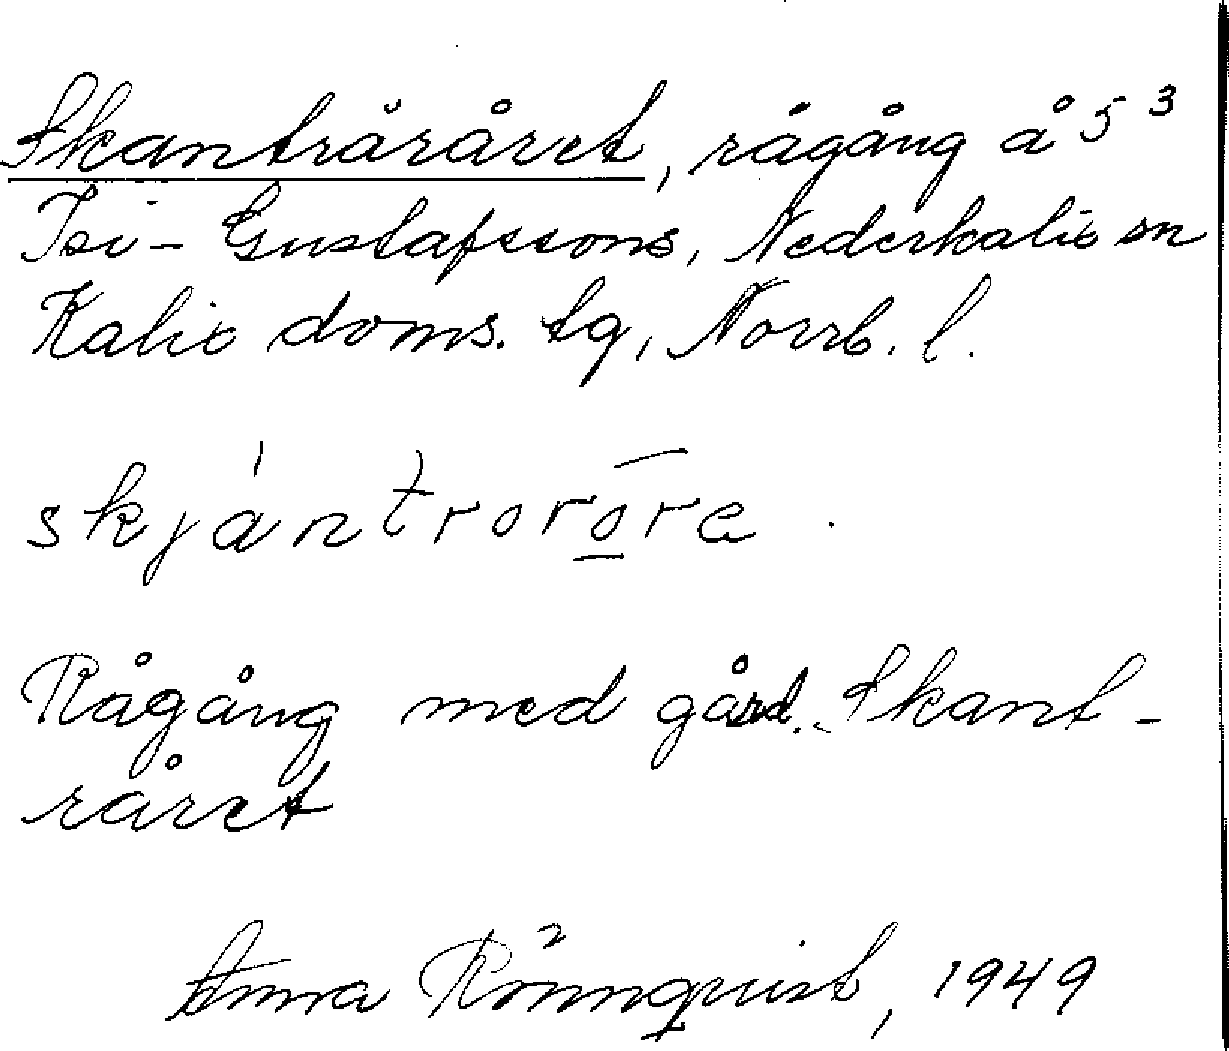 Skantråråret, rågång å 5 3
Isi - Gustafssons, Nederkalix sn
Kalix doms. tg, Norrb. l.
skjántroro̲̅re
Rågång med gård. Skant-
råret
Anna Rönnquist, 1949